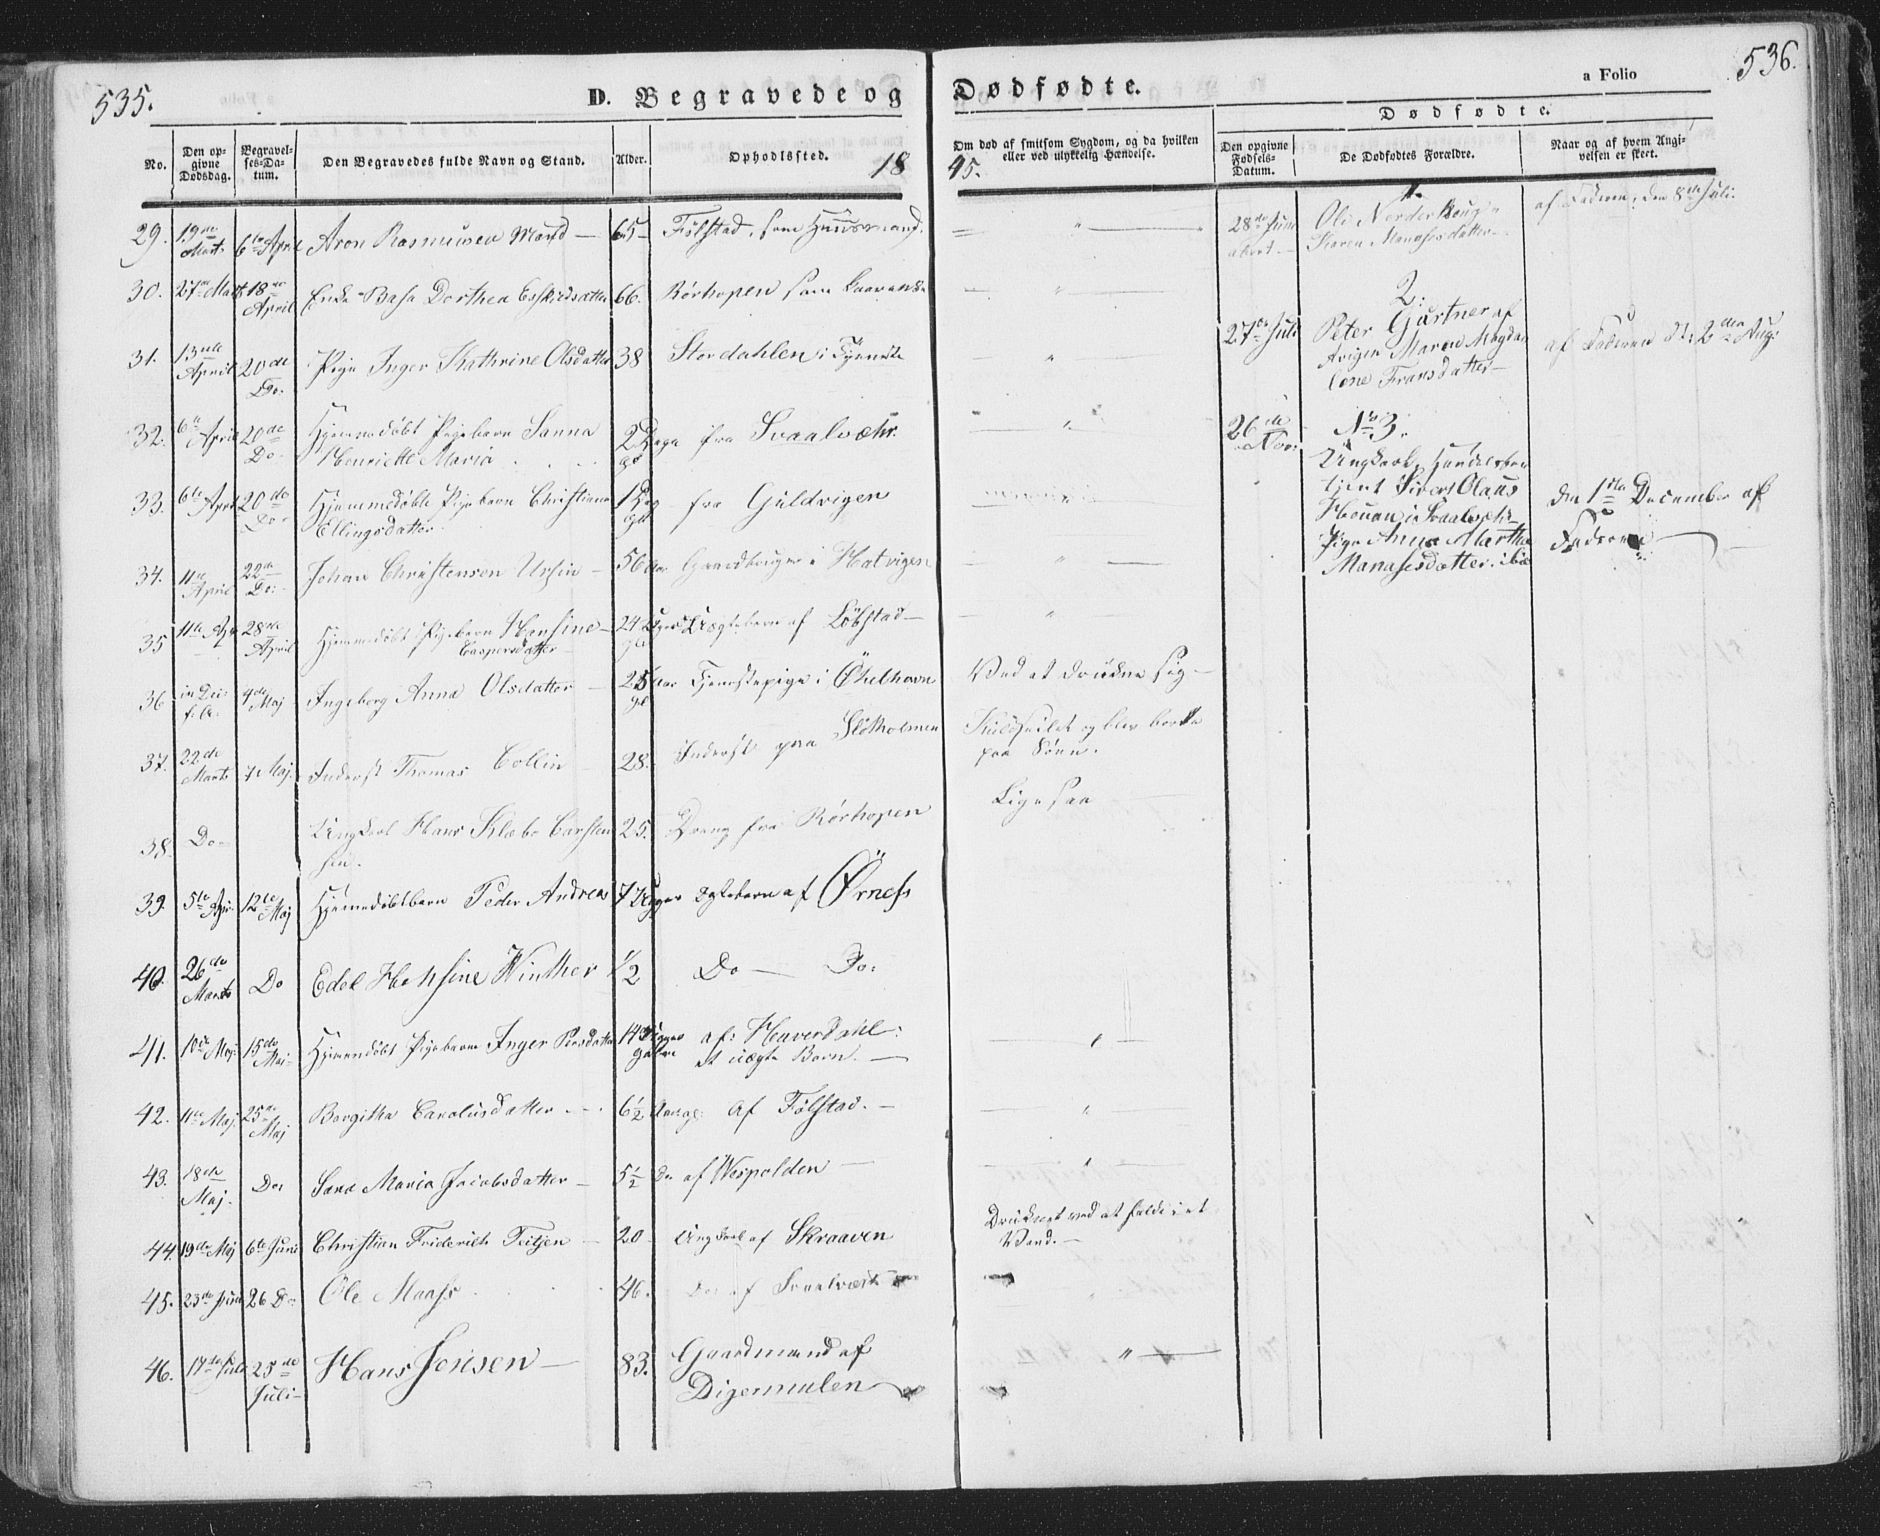 535.
D. Begravede og
Dødfødte.
a Folio
536.
No.
Den opgivne Dødsdag.
Begravelses-Datum.
Den Begravedes fulde Navn og Stand.
Alder.
Opholdssted.
1845.
Om død af smitsom Sygdom, og da hvilken
eller ved ulykkelig Hændelse.
Dødfødte.
Den opgivne Fødsels-Datum.
De Dødfødtes Forældre.
Naar og af hvem Angivelsen er skeet.
29. 19de Marts 6te April Aron Rasmusen Mand — 65 Fölstad, som Huusmand.
30. 27de Marts 18de April Enke Dorthea Eskildsdatter 66. Rörhopen
31. 13de April 20de Do. Pige Inger Kathrine Olsdatter 38 Stordahlen i Tjeneste
32. 6te April 20de Do. Hjemmedøbt Pigebarn Sanna
Henriette Maria 2 Dage gl fra Svaalvær.
33. 6te April 20de Do. Hjemmedøbte Pigebarn Christiane
Ellingsdatter 1 Dag gl fra Guldvigen
34. 11te April 22de Do: Johan Christensen Ursin — 56 Aar Gaardbruger i Hatvigen
35 11te Apr 28de April Hjemmedøbt Pigebarn Hansine —
Caspersdatter 24 Uægtebarn af Löbstad —
36 4de Maj Ingeborg Anna Olsdatter — 25 Aar gl Tjenestepige i Öxelhavn Ved at drukne sig —
37. 22de Marts 7 Maj. Inderst Thomas Collin 28. Inderst paa Slotholmen Kuldseilet og blev borte
paa Söen.
38. Do Ungkarl Hans Klæbo Carstensen. 25. Dreng fra Rörhopen Ligesaa
39. 5te Apr. 12te Maj Hjemmedøbtbarn Peder Andreas 7 Uger Ægtebarn af Örness
40. 26de Marts Do Edel Hansine Winther 1/2 Do — Do:
41. 10de Maj. 15de Mai Hjemmedøbt Pigebarn Inger Persdatter 14 Dage gamle af: Heverdahl:
et uægte Barn. —
42. 11te Maj. 25de Maj Bergitha Carolusdatter 6 1/2 Aar gl: af Fölstad. —
43. 18de Maj. Do: Sara Maria Jacobsdatter — 5 1/2 Do af Nespolden —
44. 19de Maj 6te Juni Christian Friderich Teitjen — 20 Ungkarl af Skraaven Druknet ved at falde i et
Vand. —
45. 23de Juni 26 Do Ole Maass 46. Do: af Svaalvær
46. 17de Juli 25de Juli — Hans Jensen — 83. Gaardmand af
Digermulen
1.
28de Juni abort — Ole Nerderhoug
Karen Manasesdatter — af Faderen, den 8de Juli.
2.
27de Juli Peter Gürtner af
Maren Magda-
lene Fransdatter — af Faderen d: 2den Aug:
No 3.
26de Nov: Ungkarl, Handelsbe-
tjent Sivert Olaus
Hounn i Svaalvær
Pige Anna Martha
Manasesdatter ibid den 1ste December af
Faderen —